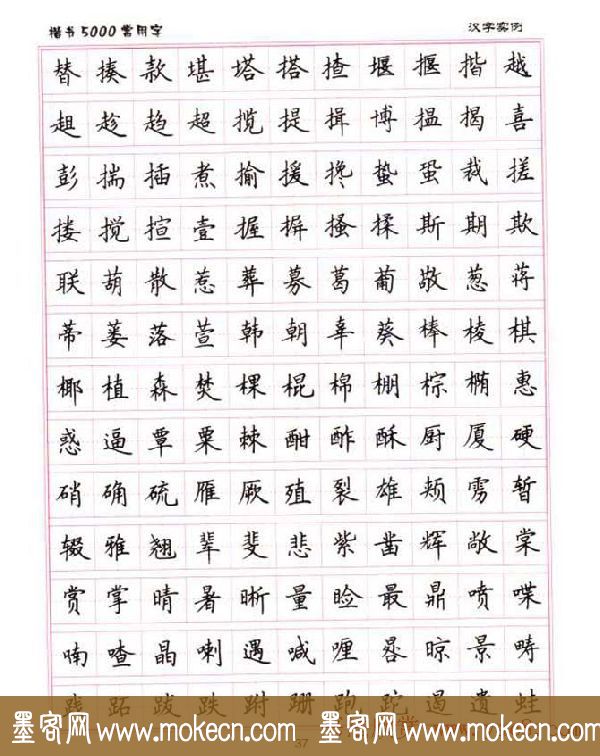 楷书5000常用字 汉字实例
替揍款堪塔搭揸堰揠揩越
趄趁趋超揽提揖博揾揭喜
彭揣插煮揄援搀蛰蛩裁搓
搂搅揎壹握摒搔揉斯期欺
联葫散惹葬募葛葡敬葱蒋
蒂蒌落萱韩朝辜葵棒棱棋
椰植森焚棵棍棉棚棕椭惠
惑逼覃粟棘酣酢酥厨厦硬
硝确硫雁厥殖裂雄颊雳暂
辍雅翘辈斐悲紫凿辉敞棠
赏掌晴暑晰量睑最鼎喷喋
喃喳晶喇遇喊喱晷晾景畴
践跖跋跌跗珊跑跎遏遗蛙
墨客网www.mokecn.com 墨客网www.mokecn.com
37